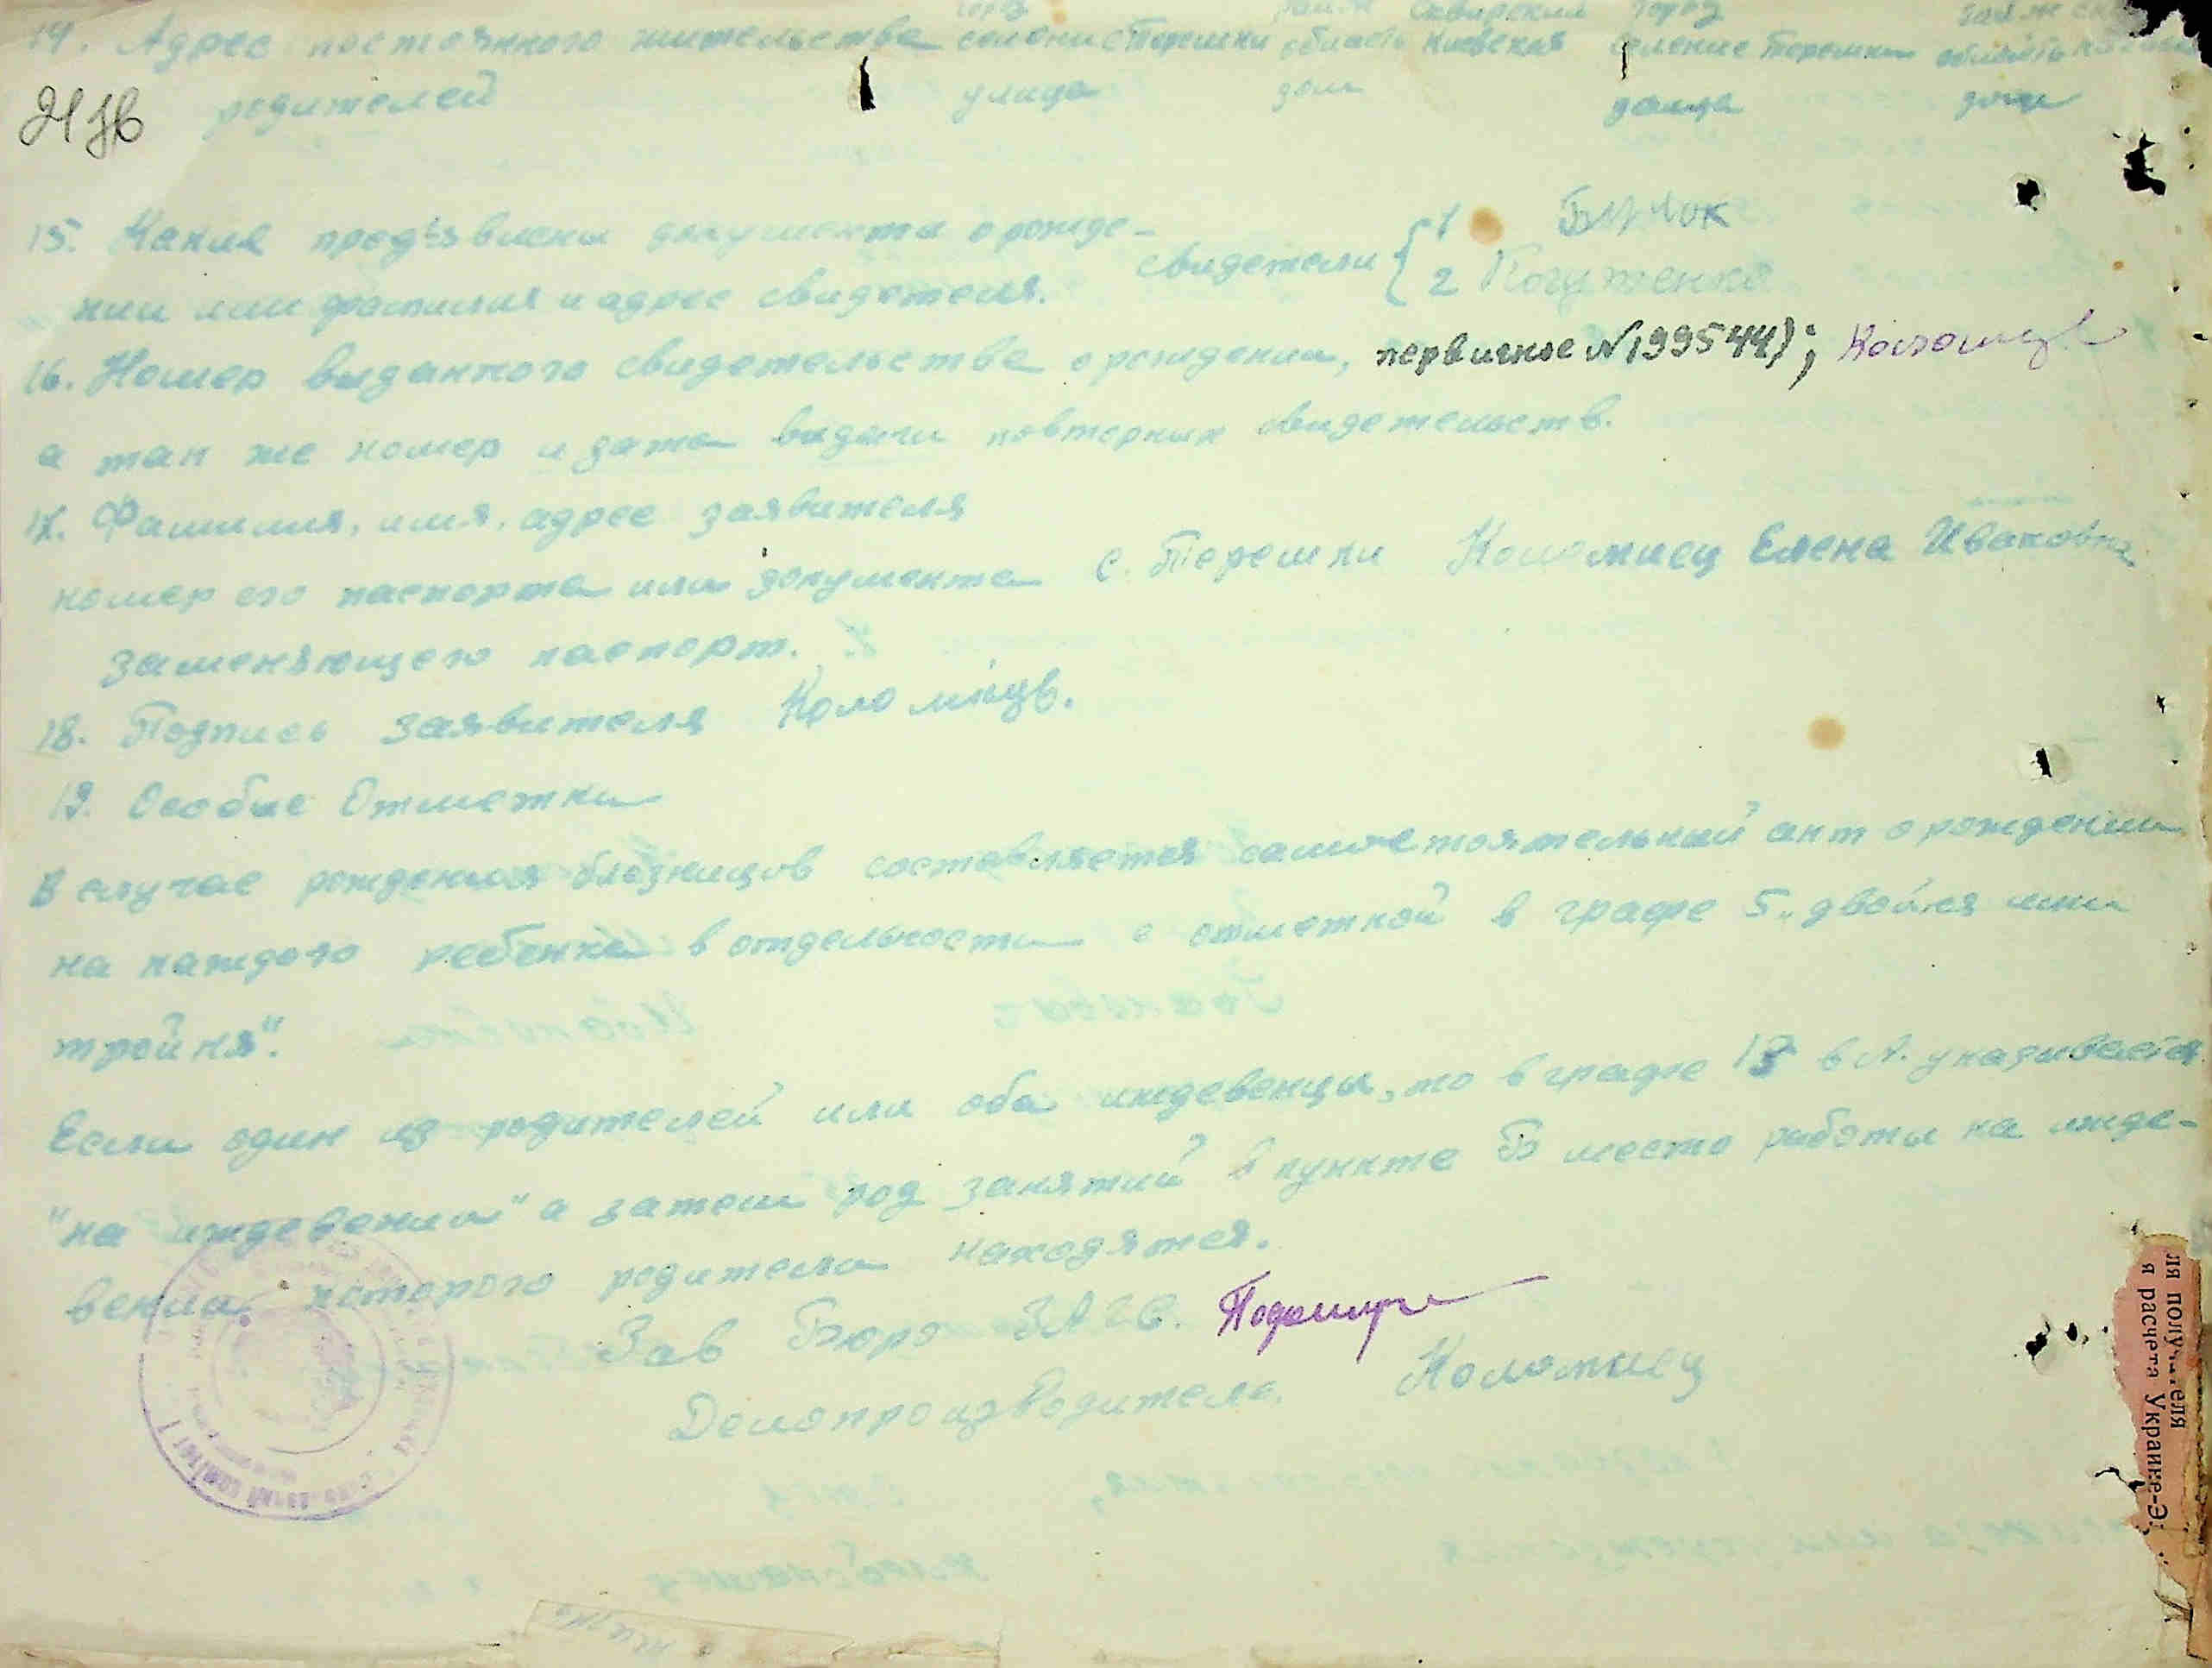 город район Сквирский город
14. Адрес постоянного жительства селение Терешки область Киевская селение Терешки область
родителей улица дом улица дом
15. Какие предъявлены документы о рожде-
нии или фамилия и адрес свидетеля. свидетели { 1
2
16. Номер выданного свидетельства о рождении, первичное N199544);
а так же номер и дата выдачи повторных свидетельств.
17. Фамилия, имя, адрес заявителя
номер его паспорта или документа с. Терешки Коломиец Елена Ивановна
заменяющего паспорт.
18. Подпись заявителя Коломіцв.
19. Особые Отметки
В случае рождения близнецов составляется самостоятельный акт о рождении
на каждого ребенка в отдельности с отметкой в графе 5 „двойня или
тройня".
Если один из родителей или оба иждевенцы, то в графе 13 в А. указивается
"на иждевении" а затем род занятий в пункте Б место работы на ижде-
вении которого родители находятся.
Зав Бюро ЗАГС.
Делопроизводитель. Коломиец
я расчета Украинке-Э